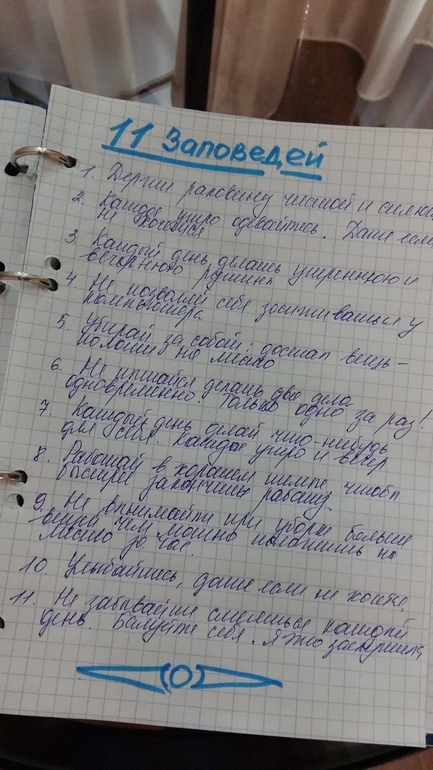 11 Заповедей
1. Держи раковину чистой и сияю
2. Каждое утро одевайтесь. Даже если
не хочется
3. Каждый день делаешь утреннюю и
вечернюю рутины
4. Не позволяй себе засиживаться у
компьютера
5. Убирай за собой: достал вещь –
положи на место
6. Не пытайся делать два дела
одновременно. Только одно за раз!
7. Каждый день делай что-нибудь
для себя. Каждое утро и вечер
8. Работай в хорошем темпе, чтобы
быстрее закончить работу
9. Не вынимайте при уборке больше
вещей чем можно положить на
место за час.
10. Улыбайтесь, даже если не хоче
11. Не забывайте смеяться каждый
день. Балуйте себя. Я это заслужила,